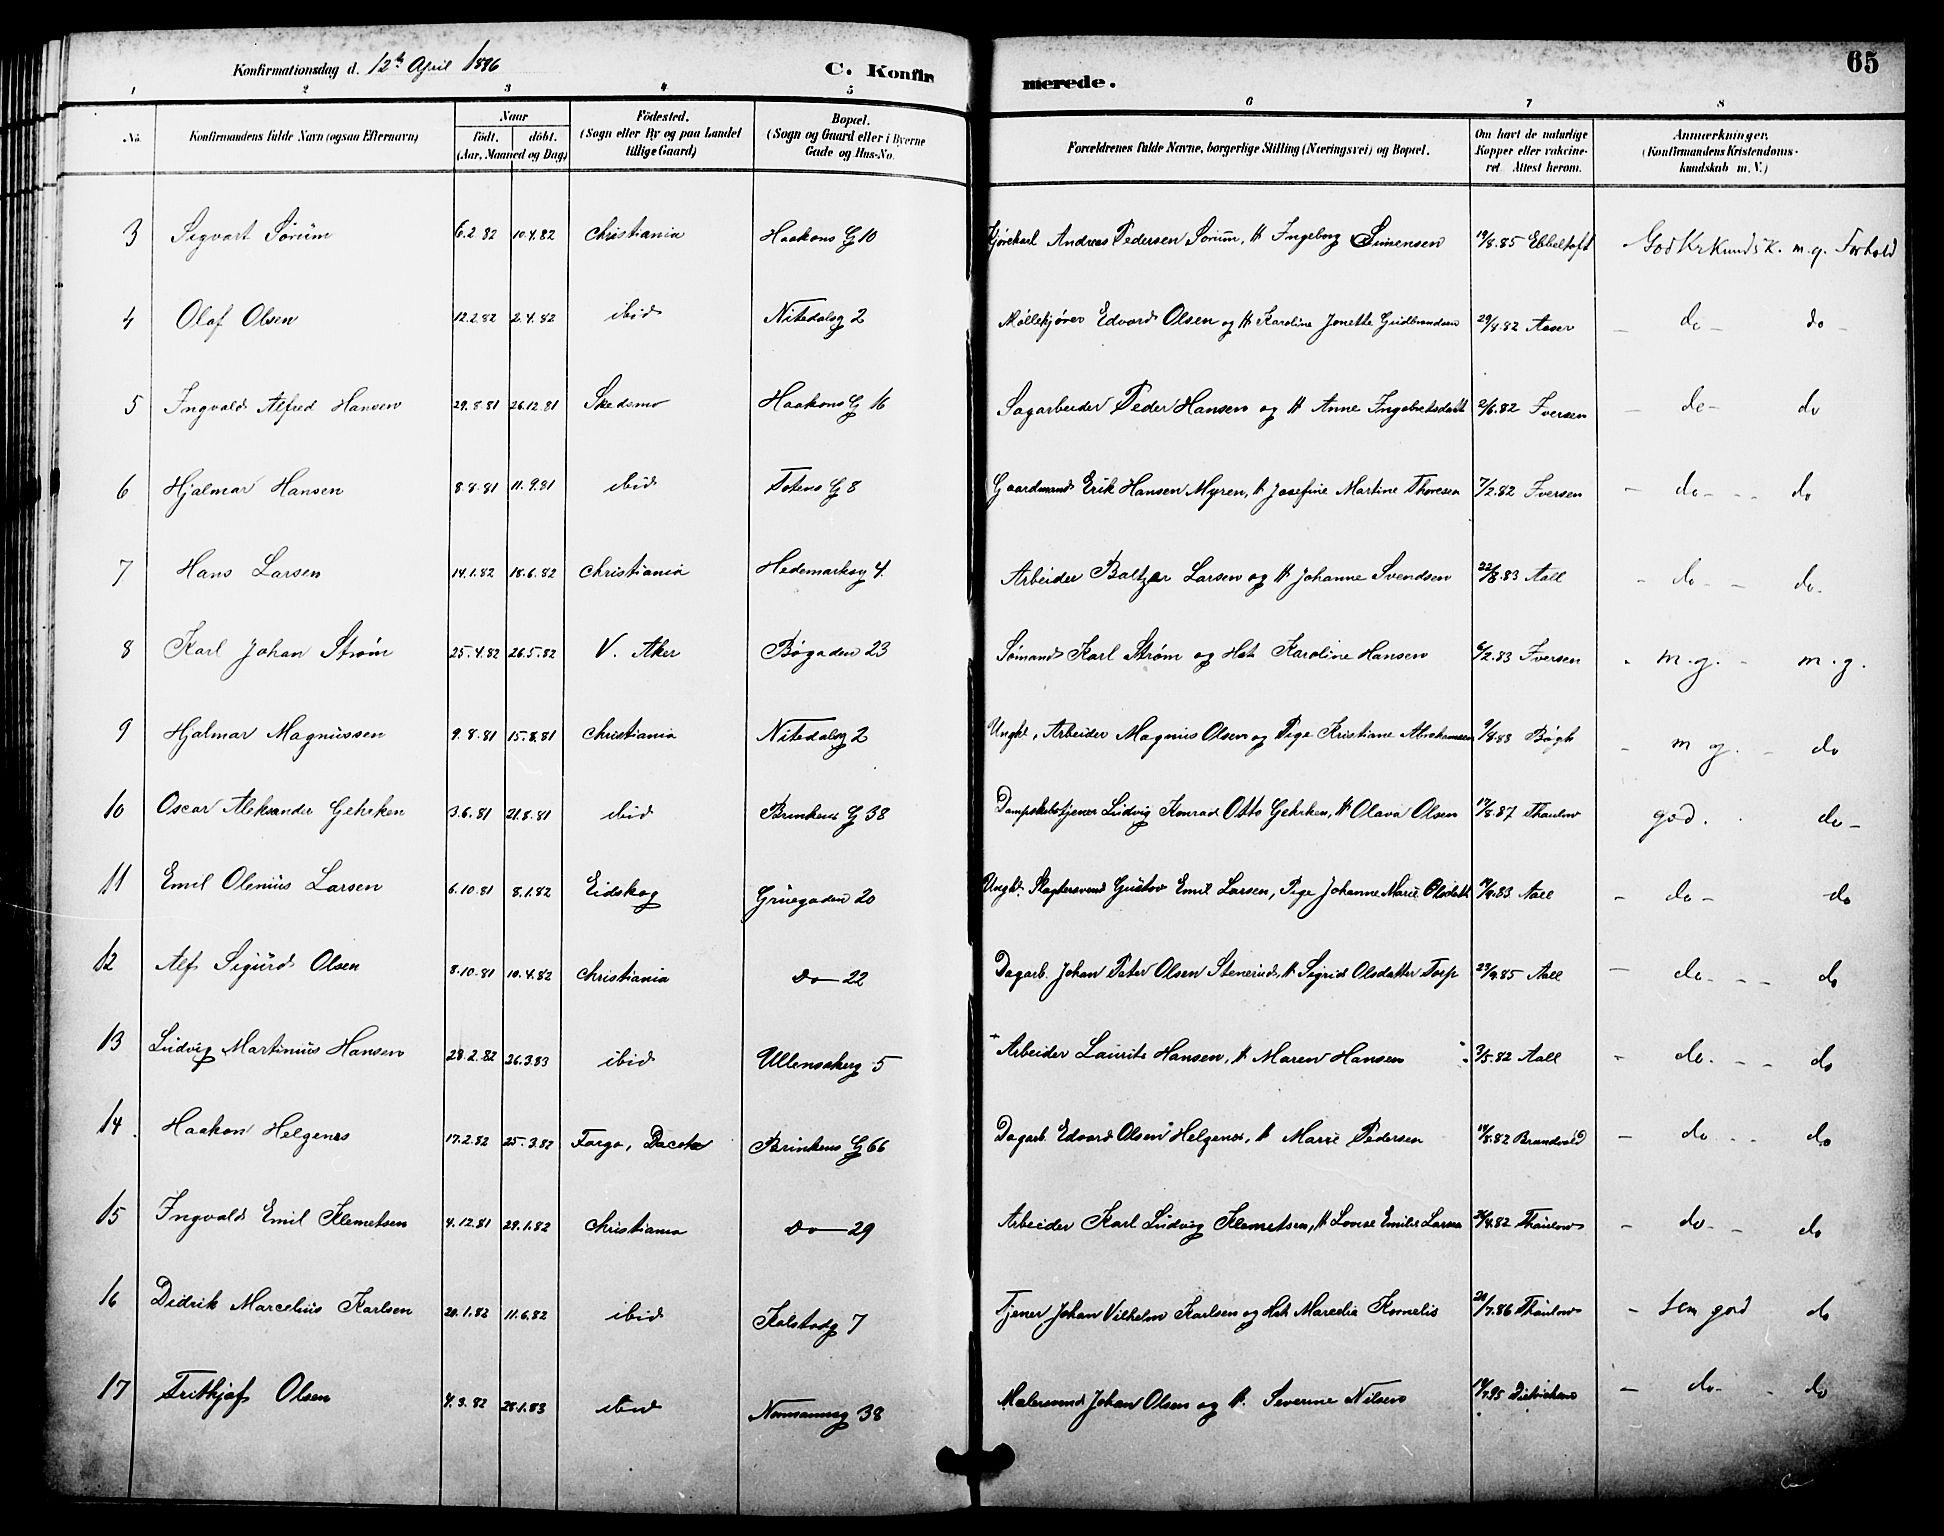 Konfirmationsdag d. 12th April 1896 C. Konfirmerede. 65
1 2 3 4 5 6 7 8
No. Konfirmandens fulde Navn (ogsaa Efternavn) Naar født. døbt. (Aar, Maaned og Dag) Fødested. (Sogn eller By og paa Landet tillige Gaard) Bopæl. (Sogn og Gaard eller i Byerne Gade og Hus-No. Forældrenes fulde Navne, borgerlige Stilling (Næringsvei) og Bopæl. Om havt de naturlige Kopper eller vakcineret. Attest herom. Anmærkninger. (Konfirmandens Kristendomskundskab m. V.)
3 Sigvart Sørum 6.2 82 10.4.82 Christiania Haakons G 10 Kjørekarl Andreas Pedersen Sørum, H Ingeborg Simensen 19/8.85 Ebbeltoft God Kr Kundsk. m.g. Forhold
4 Olaf Olsen 12.2.82 2.4.82 ibid Nitedalsg 2 Møllekjører Edvard Olsen og H Karoline Jonette Gudbrandsen 29/4.82 Aaser - do - do -
5 Ingvald Alfred Hansen 29.8.81 26.12.81 Skedsmo Haakons G 16 Sagarbeider Peder Hansen og H Anne Ingebretsdatt 2/6.82 Iversen - do - do
6 Hjalmar Hansen 8.8.81 11.9.81 ibid Totens G 8 Gaardmand Erik Hansen Myren, H Josefine Martine Thoresen 7/2.82 Iversen - do - - do
7 Hans Larsen 14.1.82 18.6.82 Christiania Hedemarksg 4. Arbeider Baltzer Larsen og H Johanne Svendsen 22/8.83 Aall - do - - do.
8 Karl Johan Strøm 25.4.82 26.5.82 V. Aker Bøgaden 23 Sømand Karl Strøm og Hst Karoline Hansen 6/2.83 Iversen - m.g. - m.g.
9 Hjalmar Magnussen 9.8.81 15.8.81 Christiania Nitedalsg 2 Ungkl, Arbeider Magnus Olsen og Pige Kristiane Abrahamsen 9/8.83 Bøgh - m g. - do
10 Oscar Aleksander Gehrken 3.6.81 21.8.81 ibid Brinkens G 38 Dampskibstjener Ludvig Konrad Otto Gehrken, H Olava Olsen 17/8.87 Thaulow god. do -
11 Emil Olenius Larsen 6.10.81 8.1.82 Eidskog Grüegaden 20 Ungkl. Slagtersvend Gustav Emil Larsen, Pige Johanne Marie Olsdatt Aall - do - do
12 Alf Sigurd Olsen 8.10.81 10.4.82 Christiania Do — 22 Dagarb. Johan Peter Olsen Stenerud, H Sigrid Olsdatter Torp 29/9.85 Aall - do - - - do
13 Ludvig Martinius Hansen 28.2.82 26.3.83 ibid Ullensakerg 5 Arbeider Laurits Hansen, H Maren Hansen 3/5.82 Aall - do. - - do
14 Haakon Helgenes 17.2.82 25.3.82 Fargo, Dacota Brinkens G 66 Dagarb. Edvard Olsen Helgenes, H Marie Pedersen 11/8.82 Brandvold - do - - do
15 Ingvald Emil Klemetsen 4.12.81 29.1.82 Christiania Do — 29 Arbeider Karl Ludvig Klemetsen, H Lovise Emilie Larsen 26/4.82 Thaulow - do - - do
16 Didrik Marcelius Karlsen 20.1.82 11.6.82 ibid Kalstadg 7 Tjener Johan Vilhelm Karlsen og Hst Marcelia Kornelis 20/7.86 Thaulow - tem god do
17 Frithjof Olsen 4.9.82 28.1.83 ibid Normannsg 38 Malersvend Johan Olsen og H. Severine Nilsen - do - - do